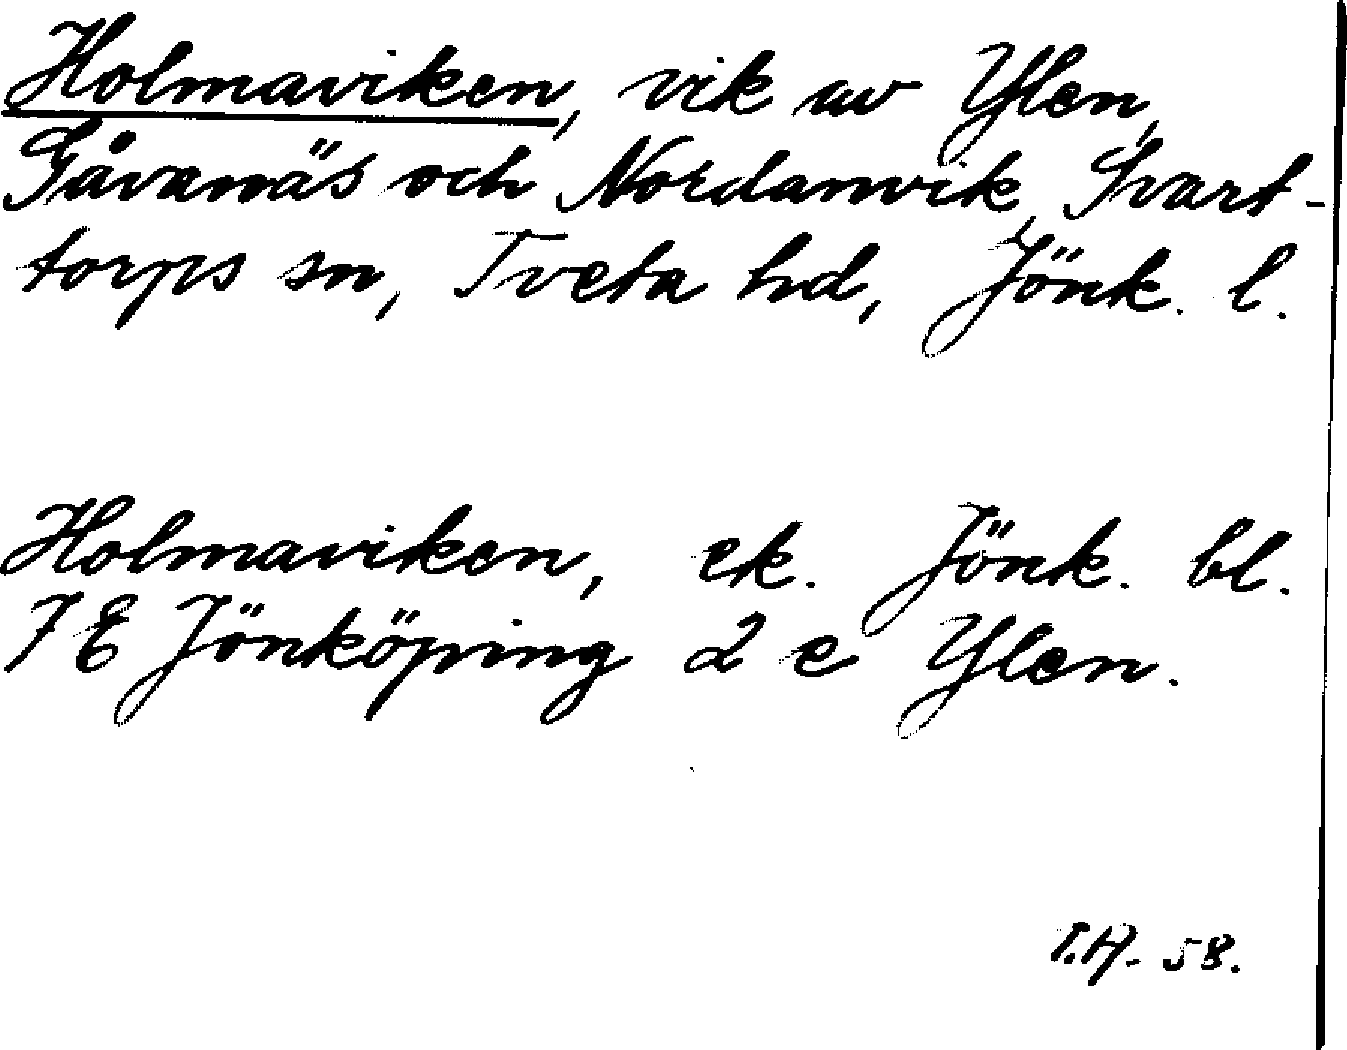 Holmaviken, vik av Ylen,
Gåvanäs och Nordanvik, Svart-
torps sn, Tveta hd, Jönk. l.
Holmaviken, ek. Jönk. bl.
7 E Jönköping 2 e Ylen.
T.A. 58.